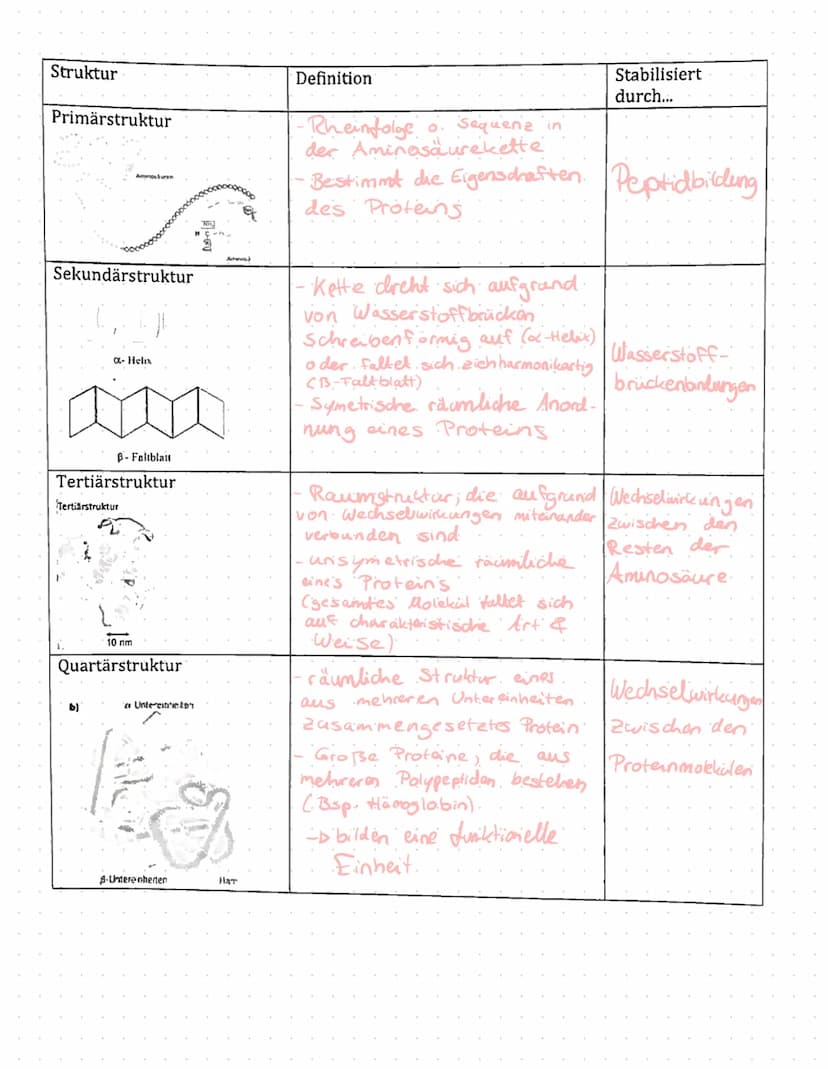 Struktur
Definition
Stabilisiert
durch...
Primärstruktur
Aminosäuren
- Rheinfolge o. Sequenz in
der Aminosäurekette
- Bestimmt die Eigenschaften
des Proteins
Peptidbildung
Sekundärstruktur
α- Helix
β - Faltblatt
- Kette dreht sich aufgrund
von Wasserstoffbrücken
schraubenförmig auf (α-Helix)
oder faltet sich ziehharmonikartig
(β-Faltblatt)
- Symetrische räumliche Anord-
nung eines Proteins
Wasserstoff-
brückenbindungen
Tertiärstruktur
Tertiärstruktur
10 nm
- Raumstruktur, die aufgrund
von Wechselwirkungen miteinander
verbunden sind
- unsymetrische räumliche
eines Proteins
(gesamtes Molekül faltet sich
auf charakteristische Art &
Weise)
Wechselwirkungen
zwischen den
Resten der
Aminosäure
Quartärstruktur
b)
α Untereinheiten
β-Untereinheiten
- räumliche Struktur eines
aus mehreren Untereinheiten
zusammengesetztes Protein
- Große Proteine, die aus
mehreren Polypeptiden bestehen
(Bsp. Hämoglobin)
→ bilden eine funktionelle
Einheit
Wechselwirkungen
zwischen den
Proteinmolekülen